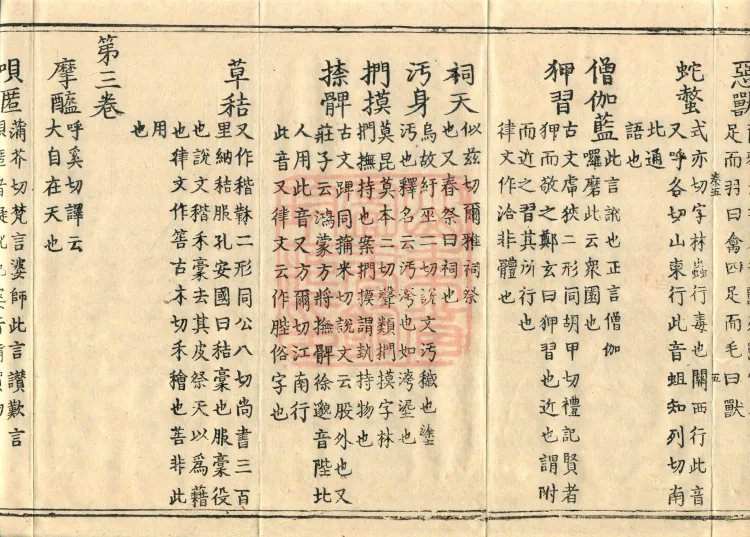 惡獸
足而羽曰禽四足而毛曰獸
蛇螫
式亦切字林蟲行毒也關西行此音
又呼各切山東行此音蛆知列切南
此通
語也
僧伽藍
此言訛也正言僧伽
囉磨此云衆園也
狎習
古文虖狹二形同胡甲切禮記賢者
狎而敬之鄭玄曰狎習也近也謂附
而近之習其所行也
律文作洽非體也
祠天
似兹切爾雅祠祭
也又春祭曰祠也
汚身
烏故紆巫二切說文汚穢也塗
汚也釋名云汚洿也如洿埿也
捫摸
莫昆莫本二切聲類捫摸字林
捫撫持也案捫摸謂執持物也
捺髀
古文踔同蒲米切說文云股外也又
莊子云鴻蒙方將撫髀徐邈音陛比
人用此音又方尔切江南行
此音又律文云作䏶俗字也
草秸
又作稭鞂二形同公八切尚書三百
里納秸服孔安國曰秸稾也服稾役
也說文稭禾稾去其皮祭天以爲藉
也律文作筈古木切禾稽也筈非此
用
也
第三卷
摩醯
呼奚切譯云
大自在天也
唄匿
蒲芥切梵言婆師此言讃歎言